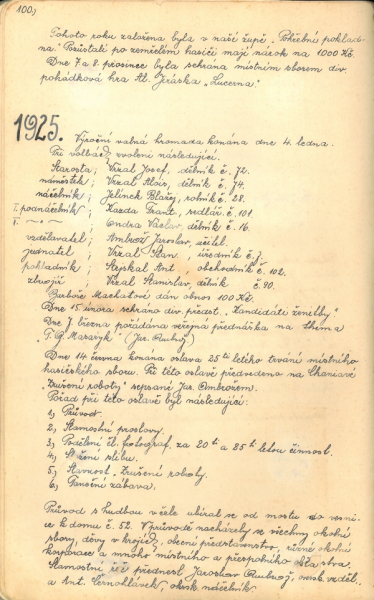 100,
Tohoto roku založena byla v naší župě „Pohřební poklad-
na“. Pozůstalí po zemřelém hasiči mají nárok na 1000 Kč.
Dne 7 a 8. prosince byla sehrána místním sborem div.
pohádková hra Al. Jiráska „Lucerna“.
1925.
Výroční valná hromada konána dne 4. ledna.
Při volbách zvoleni následující.
Starosta; Vrzal Josef, dělník č. 72.
náměstek; Vrzal Alois, dělník č. 74.
náčelník; Jelínek Blažej, rolník č. 28.
I. podnáčelník; Kazda Frant., sedlář č. 101.
II. ~ ~ Ondra Václav, dělník č. 16.
vzdělavatel; Ambrož Jaroslav, učitel.
jednatel; Vrzal Stan., úředník č. 7.
pokladník; Stejskal Ant. obchodník č. 102.
zbrojíř; Vrzal Stanislav, dělník č. 90.
Machatové dán obnos 100 Kč.
Dne 15 února sehráno div. předst. „Kandidáti ženitby“
Dne 7. března pořádána veřejná přednáška na thema
„T. G. Masaryk“ (Jar. Ambrož)
Dne 14 června konána oslava 25ti letého trvání místního
hasičského sboru. Při této oslavě předvedena na
„Zrušení roboty“ sepsané Jar. Ambrožem.
Pořad při této oslavě byl následující:
1, Průvod.
2, Slavnostní proslovy.
3, Podělení čl. fotograf. za 20ti a 25ti letou činnost.
4, Složení slibu.
5, Slavnost „Zrušení roboty.
6, Taneční zábava.
Průvod s hudbou v čele ubíral se od mostu do vesni-
ce k domu č. 52. V průvodě nacházely se všechny okolní
sbory, děvy v krojích, obecní představenstvo, různé okolní
korporace a mnoho místního a přespolního obecenstva.
Slavnostní řeč přednesl Jaroslav Ambrož, vzděl.
a Ant. Černohlávek, okrsk. náčelník